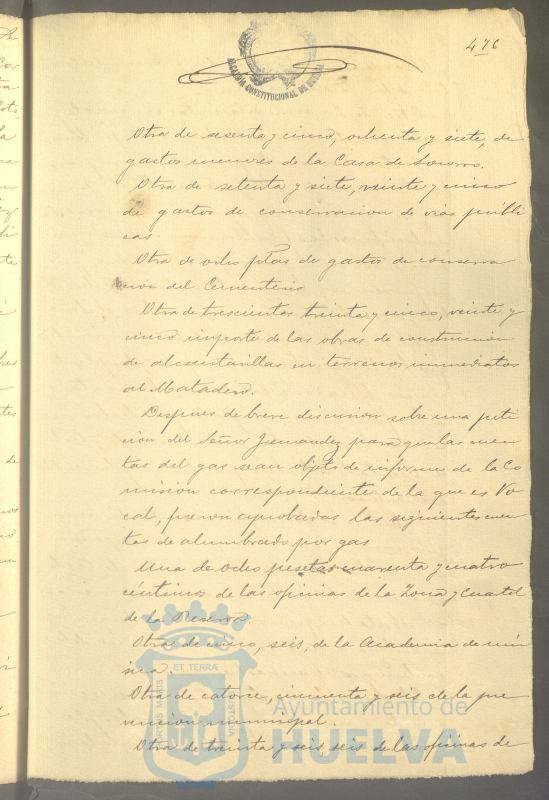 476
ALCALDIA CONSTITUCIONAL DE HUELVA
Otra de sesenta y cinco, ochenta y siete, de
gastos menores de la Casa de Socorro.
Otra de setenta y siete, veinte y cinco
de gastos de conservacion de vias públi
cas
Otra de ocho ptas de gastos de conserva
cion del Cementerio
Otra de trescientas treinta y cinco, veinte y
cinco importe de las obras de construccion
de alcantarillas en terrenos inmediatos
al Matadero.
Despues de breve discusion sobre una peti
cion del Señor Fernandez para que las cuen
tas del gas sean objeto de informe de la Co
mision correspondiente de la que es Vo
cal, fueron aprobadas las siguientes cuen
tas de alumbrado por gas
Una de ocho pesetas cuarenta y cuatro
céntimos de las oficinas de la Zona y Cuartel
de la Reserva
Otra de cinco, seis, de la Academia de mú
sica.
Otra de catorce, cincuenta y seis de la pre
vencion municipal.
Otra de treinta y seis, seis de las oficinas de
PORTUS MARIS ET TERRÆ CUSTODIA
Ayuntamiento de
HUELVA